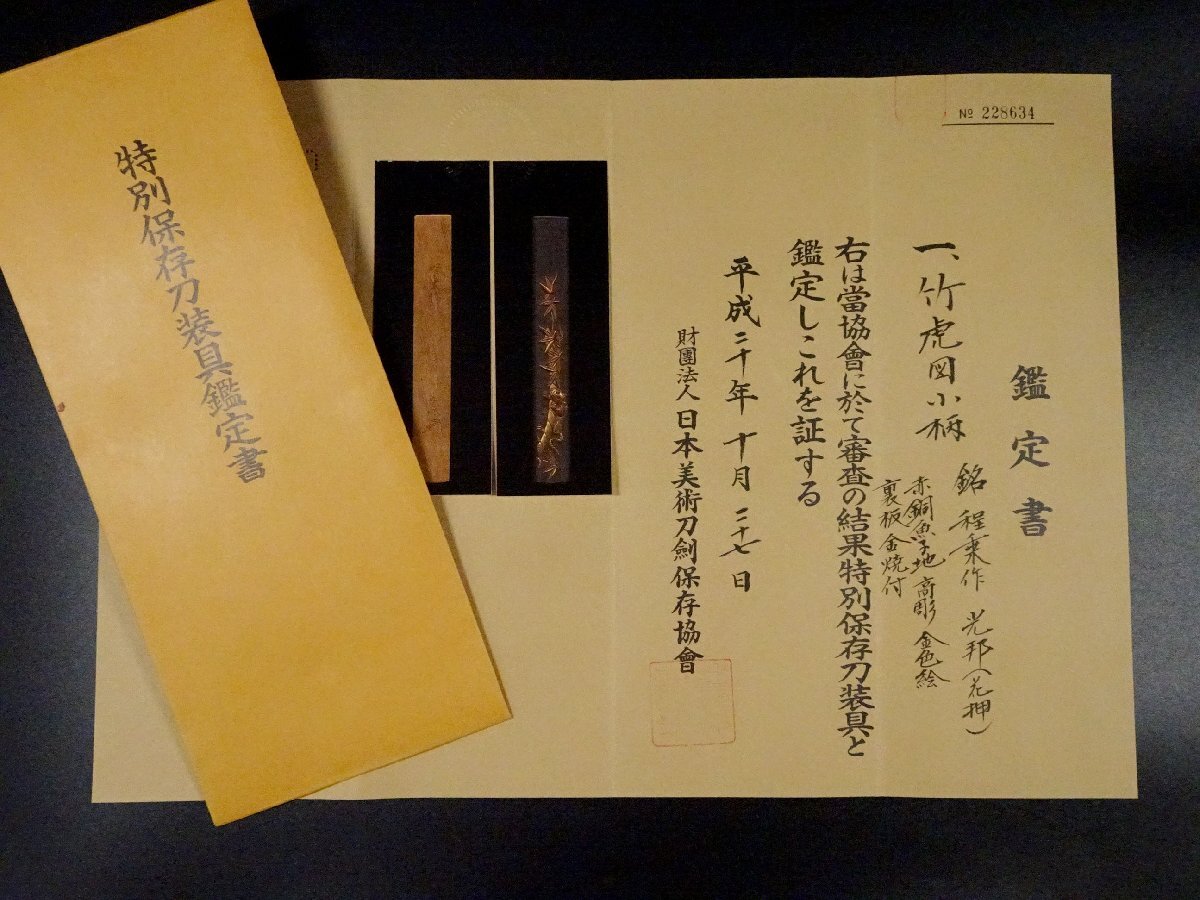 特別保存刀装具鑑定書
№ 228634
鑑定書
一、竹虎図小柄
銘 程乗作 光邦(花押)
赤銅魚子地 高彫 金色絵
裏板金焼付
右は當協會に於て審査の結果特別保存刀装具と
鑑定しこれを証する
平成二十年十月二十七日
財團法人 日本美術刀劍保存協會